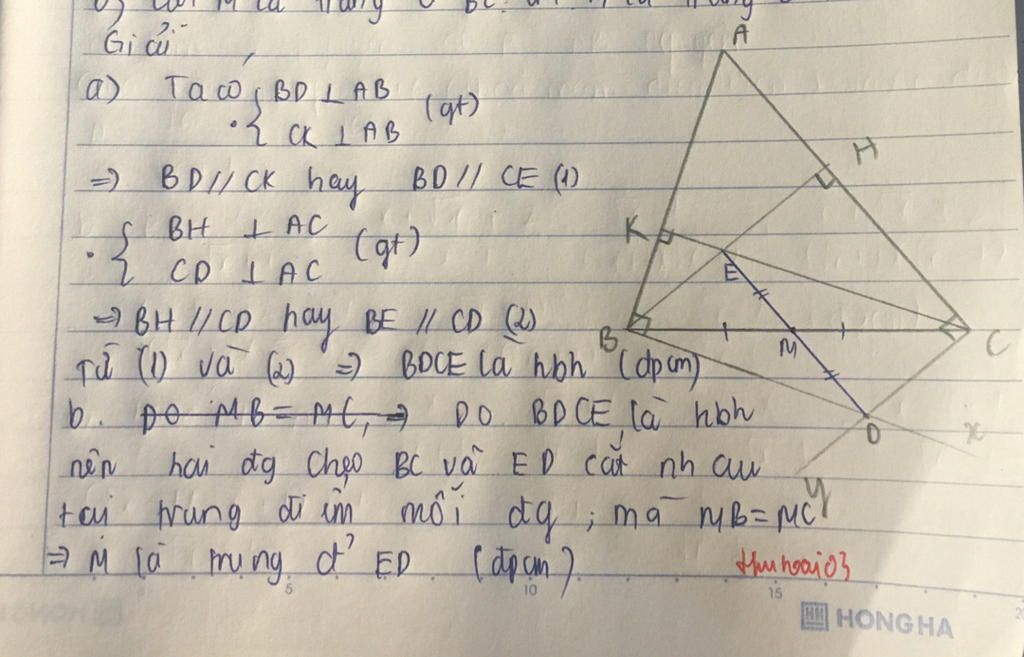 Giải
a) Ta có { BD ⊥ AB
CK ⊥ AB (gt)
=> BD // CK hay BD // CE (1)
• { BH ⊥ AC
CD ⊥ AC (gt)
=> BH // CD hay BE // CD (2)
Từ (1) và (2) => BDCE là hbh (đpcm)
b. Do MB = MC, => DO BDCE là hbh
nên hai đg chéo BC và ED cắt nhau
tại trung điểm mỗi đg ; mà MB = MC
=> M là trung đ' ED (đpcm)
A
H
K
E
B
M
C
D
x
y
thuhoai03
5
10
15
20
HH HONG HA